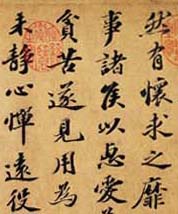 然有懷求之靡
事諸侯以惠愛
貧苦遂見用為
未靜心憚遠役